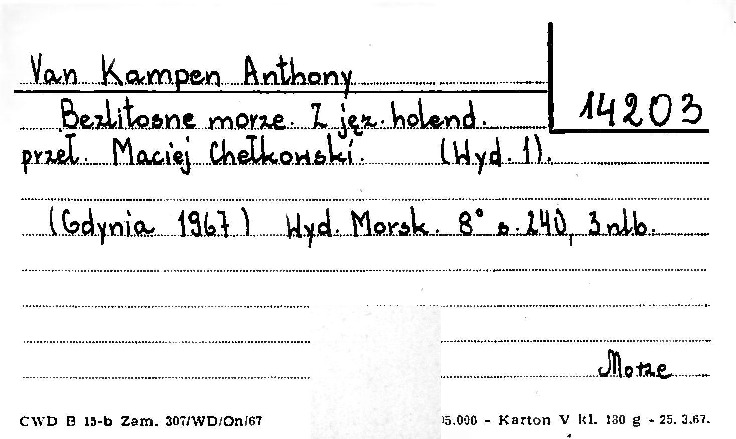 Van Kampen Anthony
14203
Bezlitosne morze. Z jęz. holend.
przeł. Maciej Chełkowski. (Wyd. 1).
(Gdynia 1967) Wyd. Morsk. 8° s. 240, 3 nlb.
Morze
CWD B 15-b Zam. 307/WD/On/67 5.000 - Karton V kl. 180 g - 25.3.67.